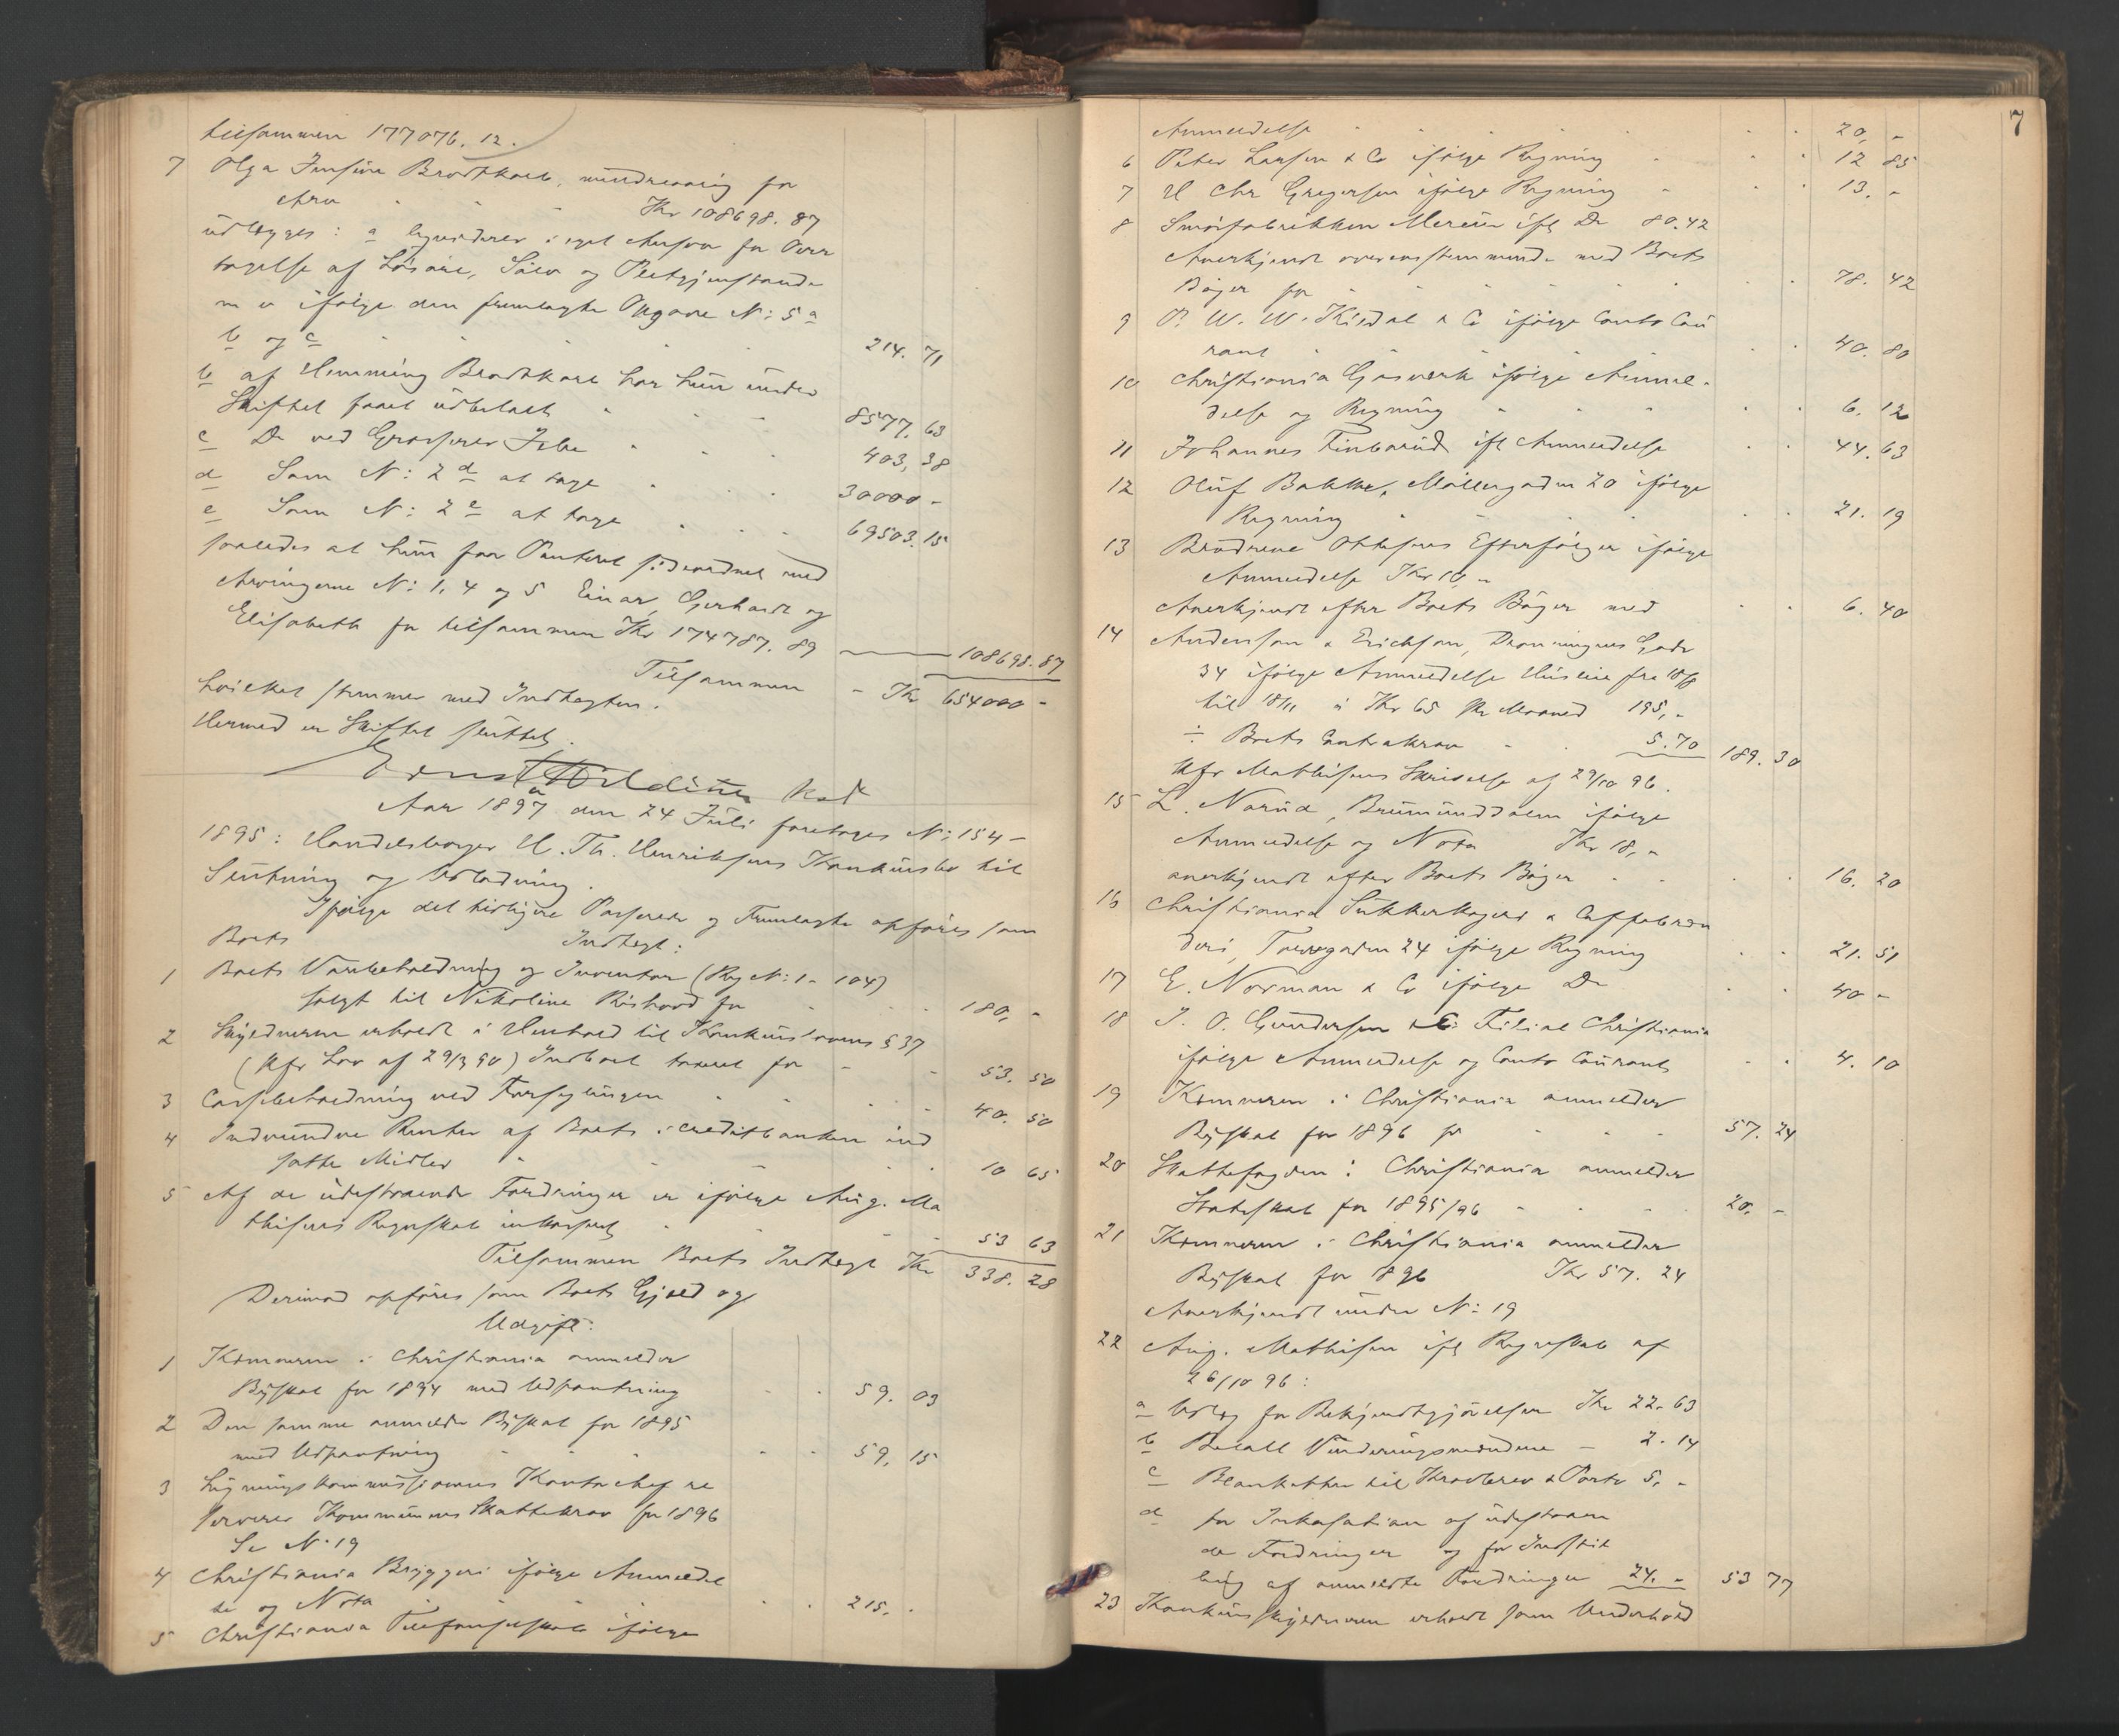 tilsammen 177076. 12.
7 Olga Jensine Brodtkorb, mindreaarig for
Arv Kr 108698. 87
udlægges: a ligvidérer i eget Ansvar for Over
tagelse af Løsøre, Sølv og Pletgjenstande
m v ifølge den fremlagte Opgave N: 5 a
b og c 214. 71
b af Henning Brodtkorb har hun under
Skiftet faaet udbetalt 8577. 63
c Do ved Grosserer Jebe 403, 38
d Som N: 2 d at tage 30000 -
e Som N: 2 e at tage 69503. 15
saaledes at hun faar Panteret sideordnet med
Arvingerne N: 1, 4 og 5 Einar, Gerhardt og
Elisabeth for tilsammen Kr 174787. 89 108698. 87
Tilsammen - Kr 654000 -
hvilket stemmer med Indtægten.
Hermed er Skiftet sluttet.
Aar 1897 den 24 Juli foretoges N: 154 -
1895: Handelsborger H. Th. Henriksens Konkursbo til
Slutning og Udlodning.
Ifølge det tidligere Passerede og Fremlagte opføres som
Boets Indtægt:
1 Boets Varebeholdning og Inventar (Reg N: 1 - 104)
solgt til Nikoline for 180, -
2 Skyldneren erholdt i Henhold til Konkurslovens § 37
(Kfr Lov af 29/3 90) Indboet taxeret for 53. 50
3 Cassebeholdning ved Forseglingen 40. 50
4 Indvundne Renter af Boets i Creditbanken ind
satte Midler 10 65
5 Af de udestaaende Fordringer er ifølge Aug. Ma
thisens Regnskab inkasseret 53 63
Tilsammen Boets Indtægt Kr 338. 28
Derimod opføres som Boets Gjæld og
Udgift:
1 Kemneren i Christiania anmelder
Byskat for 1894 med Udpantning 59. 03
2 Den samme anmelder Byskat for 1895
med Udpantning 59, 15
3 Ligningskommissionens Kontorchef re
serverer Kommunens Skattekrav for 1896
Se N: 19
4 Christiania Bryggeri ifølge Anmeldel
se og Nota 215, -
5 Christiania Telefonselskab ifølge
7
Anmeldelse 20, -
6 Peter Larsen & Co ifølge Regning 12 85
7 H Chr Gregersen ifølge Regning 13. -
8 Smørfabrikken Merkur ifl Do 80.42
Anerkjendt overensstemmende med Boets
Bøger for 78. 42
9 P. W. W. Kildal & Co ifølge Conto Cou
rant 40. 80
10 Christiania Gasværk ifølge Anmel-
delse og Regning 6. 12
11 Johannes Finborud ifl Anmeldelse 44. 63
12 Oluf Bakke, Møllergaden 20 ifølge
Regning 21. 19
13 Brødrene Ottesens Efterfølger ifølge
Anmeldelse Kr 10, -
Anerkjendt efter Boets Bøger med 6. 40
14 Andersson & Erichsen, Dronningens Gade
34 ifølge Anmeldelse Husleie fra 18/8
til 18/11 à Kr 65 pr Maaned 195, -
÷ Boets Contrakrav 5.70 189. 30
Kfr Mathisens Skrivelse af 29/10 96.
15 L. Narud, Brumunddalen ifølge
Anmeldelse og Nota Kr 18, -
anerkjendt efter Boets Bøger 16. 20
16 Christiania Sukkerkogeri & Caffebræn
deri, Toldbogaden 24 ifølge Regning 21. 51
17 E. Norman & Co ifølge Do 40 -
18 J. O. Gundersen & C: Filial Christiania
ifølge Anmeldelse og Conto Courant 4. 10
19 Kemneren i Christiania anmelder
Byskat for 1896 fr 57. 24
20 Skattefogden i Christiania anmelder
Statsskat for 1895/96 20. -
21 Kemneren i Christiania anmelder
Byskat for 1896 Kr 57. 24
Anerkjendt under N: 19
22 Aug. Mathisen ifl Regnskab af
26/10 96:
a Udlæg for Bekjendtgjørelsen Kr 22.63
b Betalt Vurderingsmændene - 2.14
c Blanketter til Kravbrev & Porto 5, -
d for Inkasation af udestaaen
de Fordringer og for Indstil
ling af anmeldte Fordringer 24. - 53 77
23 Konkursskyldneren erholdt som Underhold